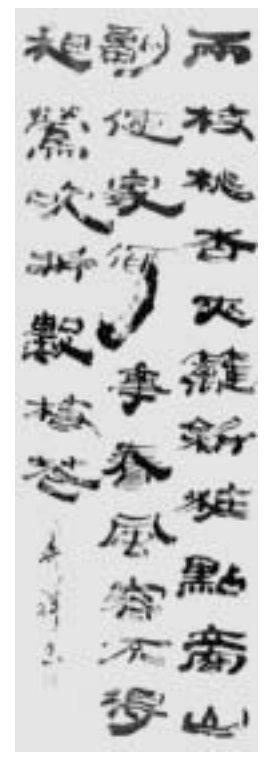 兩枝桃杏映籬斜粧點商山
副使家何事春風容不得
和鶯吹折數枝花